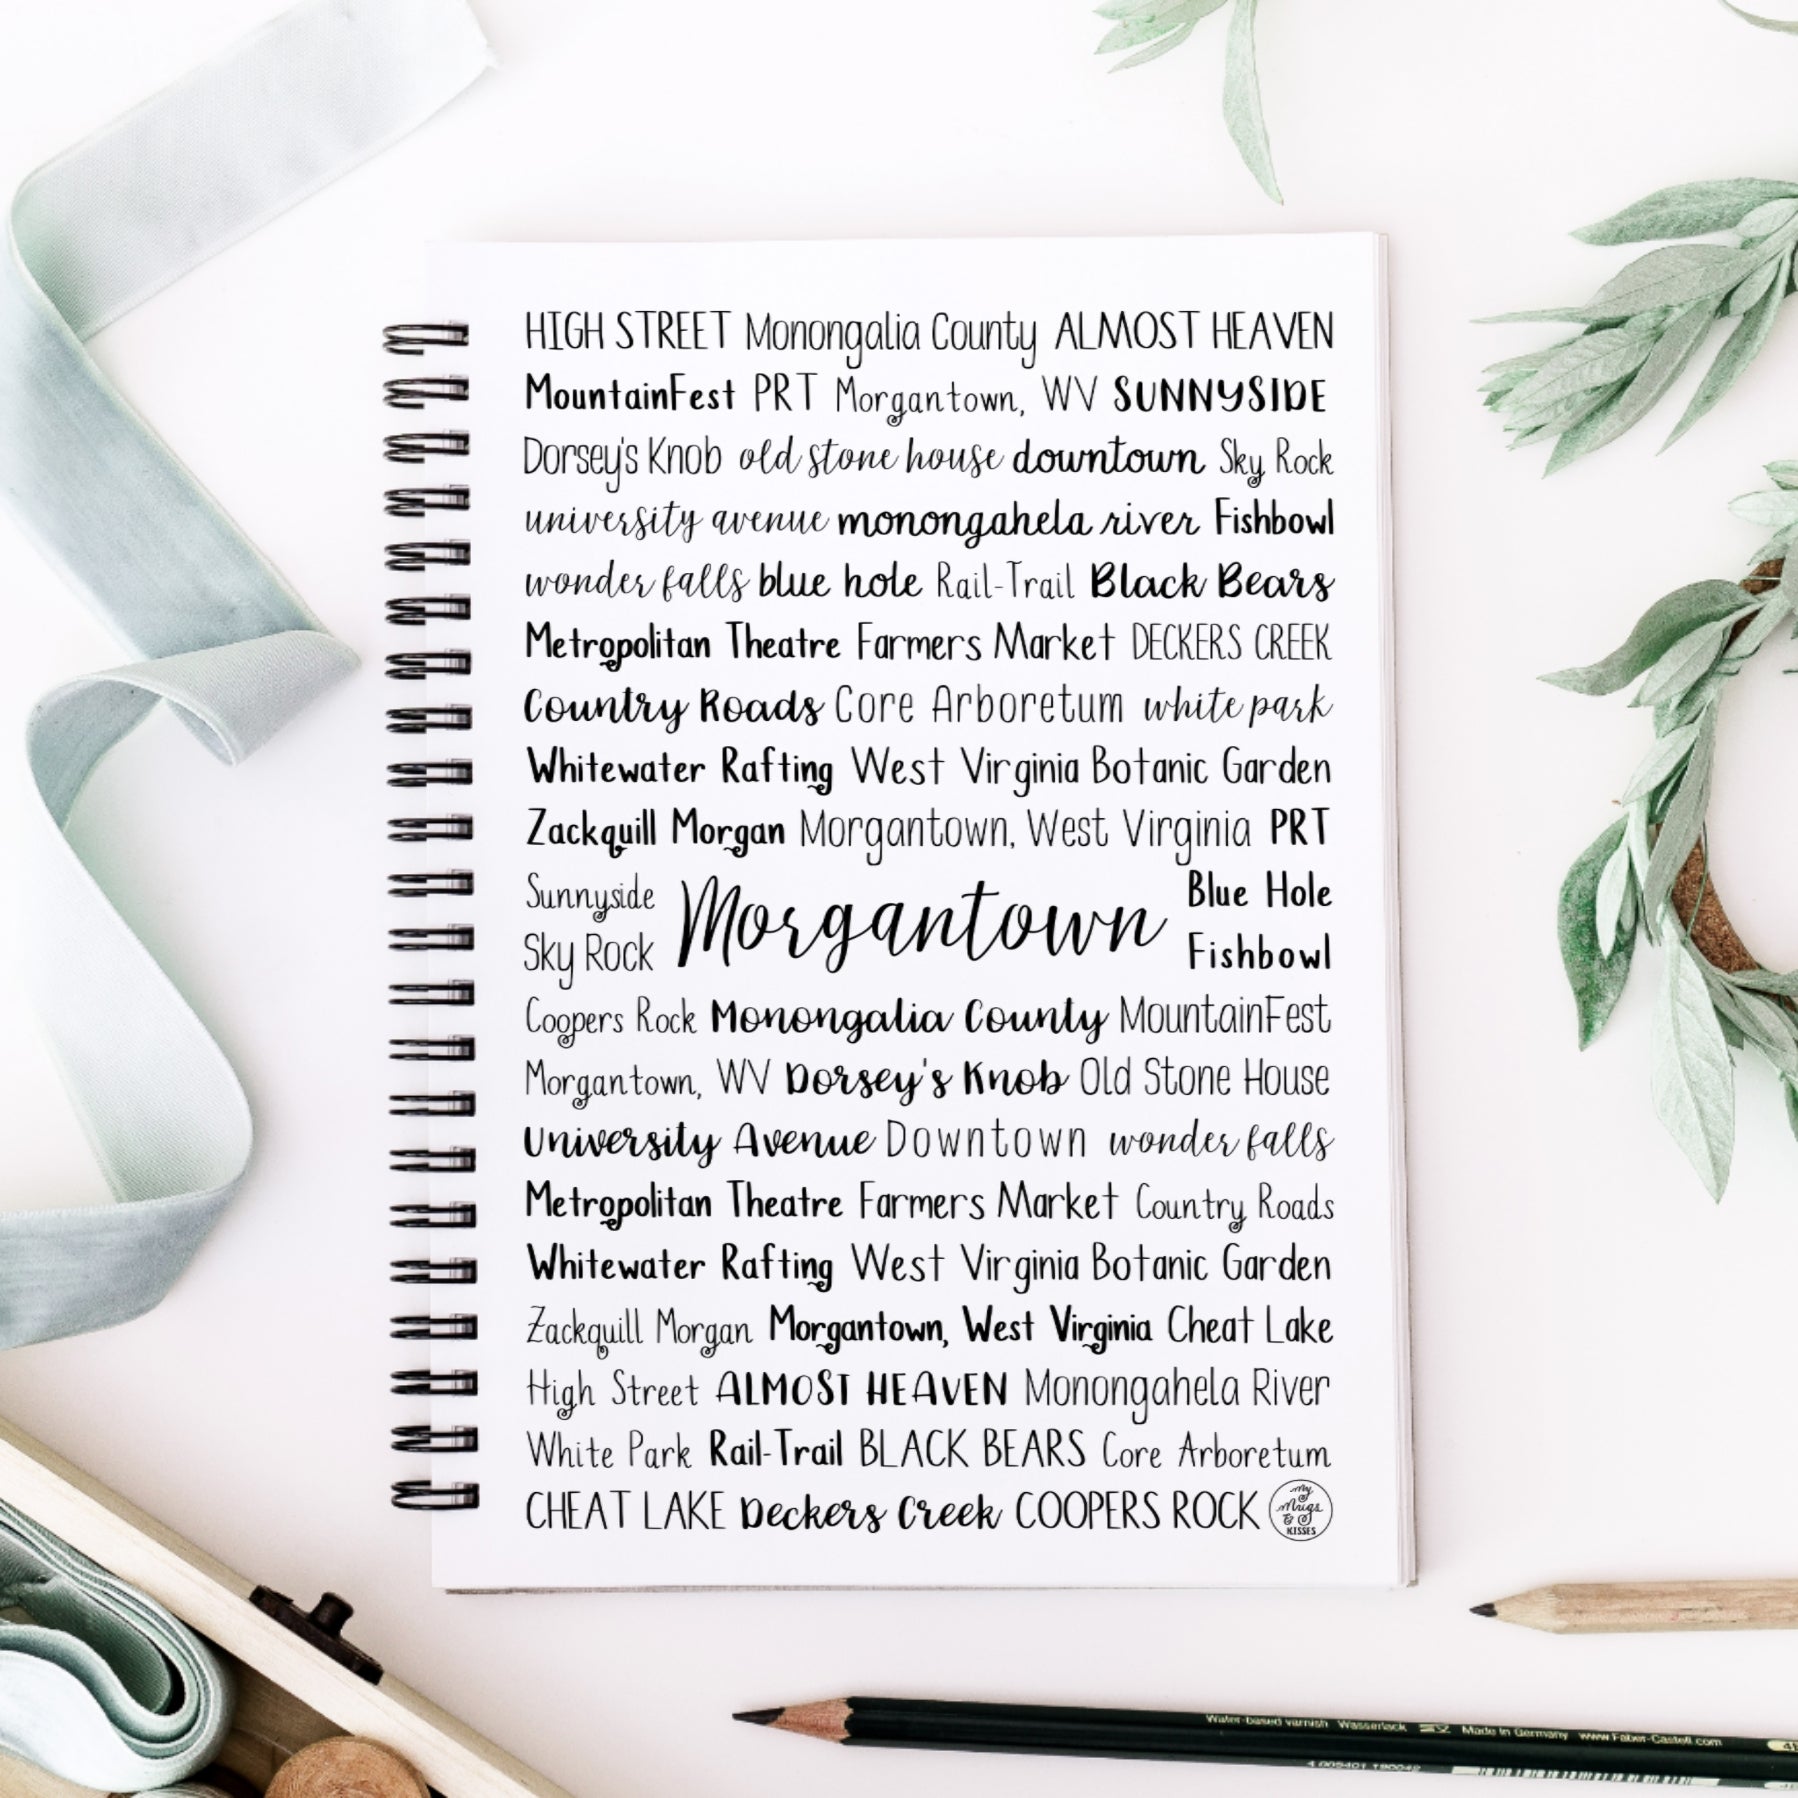 HIGH STREET Monongalia County ALMOST HEAVEN
MountainFest PRT Morgantown, WV SUNNYSIDE
Dorsey's Knob old stone house downtown Sky Rock
university avenue monongahela river Fishbowl
wonder falls blue hole Rail-Trail Black Bears
Metropolitan Theatre Farmers Market DECKERS CREEK
Country Roads Core Arboretum white park
Whitewater Rafting West Virginia Botanic Garden
Zackquill Morgan Morgantown, West Virginia PRT
Sunnyside
Sky Rock
Morgantown
Blue Hole
Fishbowl
Coopers Rock Monongalia County MountainFest
Morgantown, WV Dorsey's Knob Old Stone House
University Avenue Downtown wonder falls
Metropolitan Theatre Farmers Market Country Roads
Whitewater Rafting West Virginia Botanic Garden
Zackquill Morgan Morgantown, West Virginia Cheat Lake
High Street ALMOST HEAVEN Monongahela River
White Park Rail-Trail BLACK BEARS Core Arboretum
CHEAT LAKE Deckers Creek COOPERS ROCK
My
Mugs
&
KISSES
Water-based varnish Wasserlack Made in Germany www.Faber-Castell.com
4 005401 190042